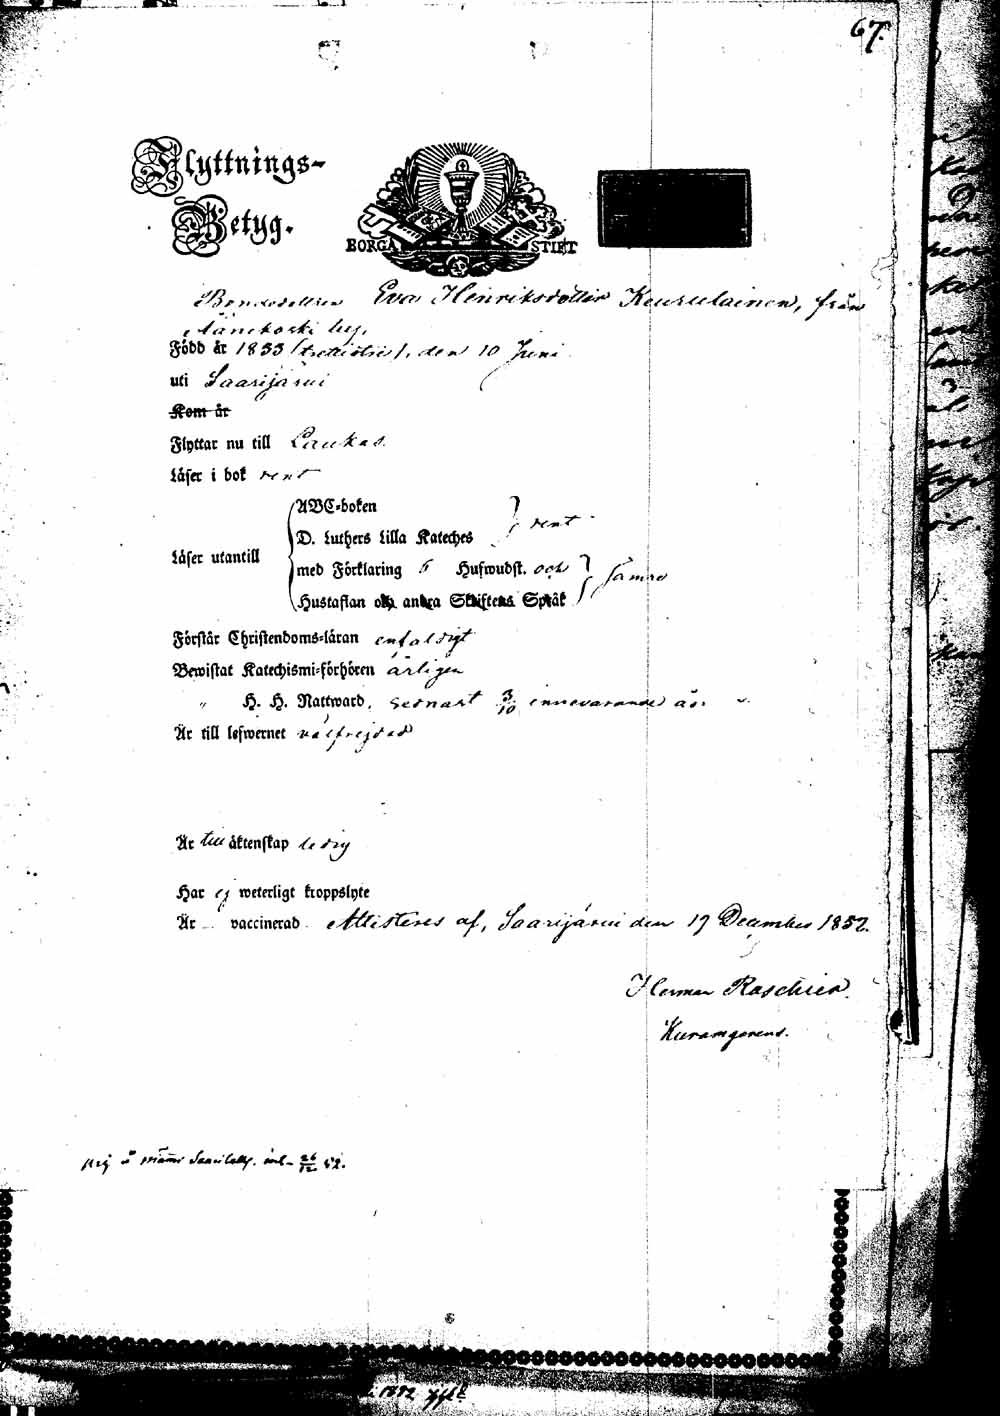 67.
Flyttnings-
Betyg.
BORGÅ STIFT
Bondedottren Eva Henriksdotter Keurulainen, från
Äänekoski by,
Född år 1833 (trettiotre), den 10 Juni
uti Saarijärvi
Kom år
Flyttar nu till Laukas.
Läser i bok rent
Läser utantill
ABC-boken
D. Luthers Lilla Kateches } rent
med Förklaring 5 Hufwudst. och
Hustaflan och andra Skriftens Språk } samre
Förstår Christendoms-läran enfaldigt
Bewistat Katechismi-förhören årligen
" H. H. Nattward, sednast 3/10 innevarande år
Är till lefwernet välfrejdad
Är till äktenskap ledig
Har ej weterligt kroppslyte
Är vaccinerad Attesteres af, Saarijärvi den 17 December 1852.
Herman Roschier.
26/12 52.
1892